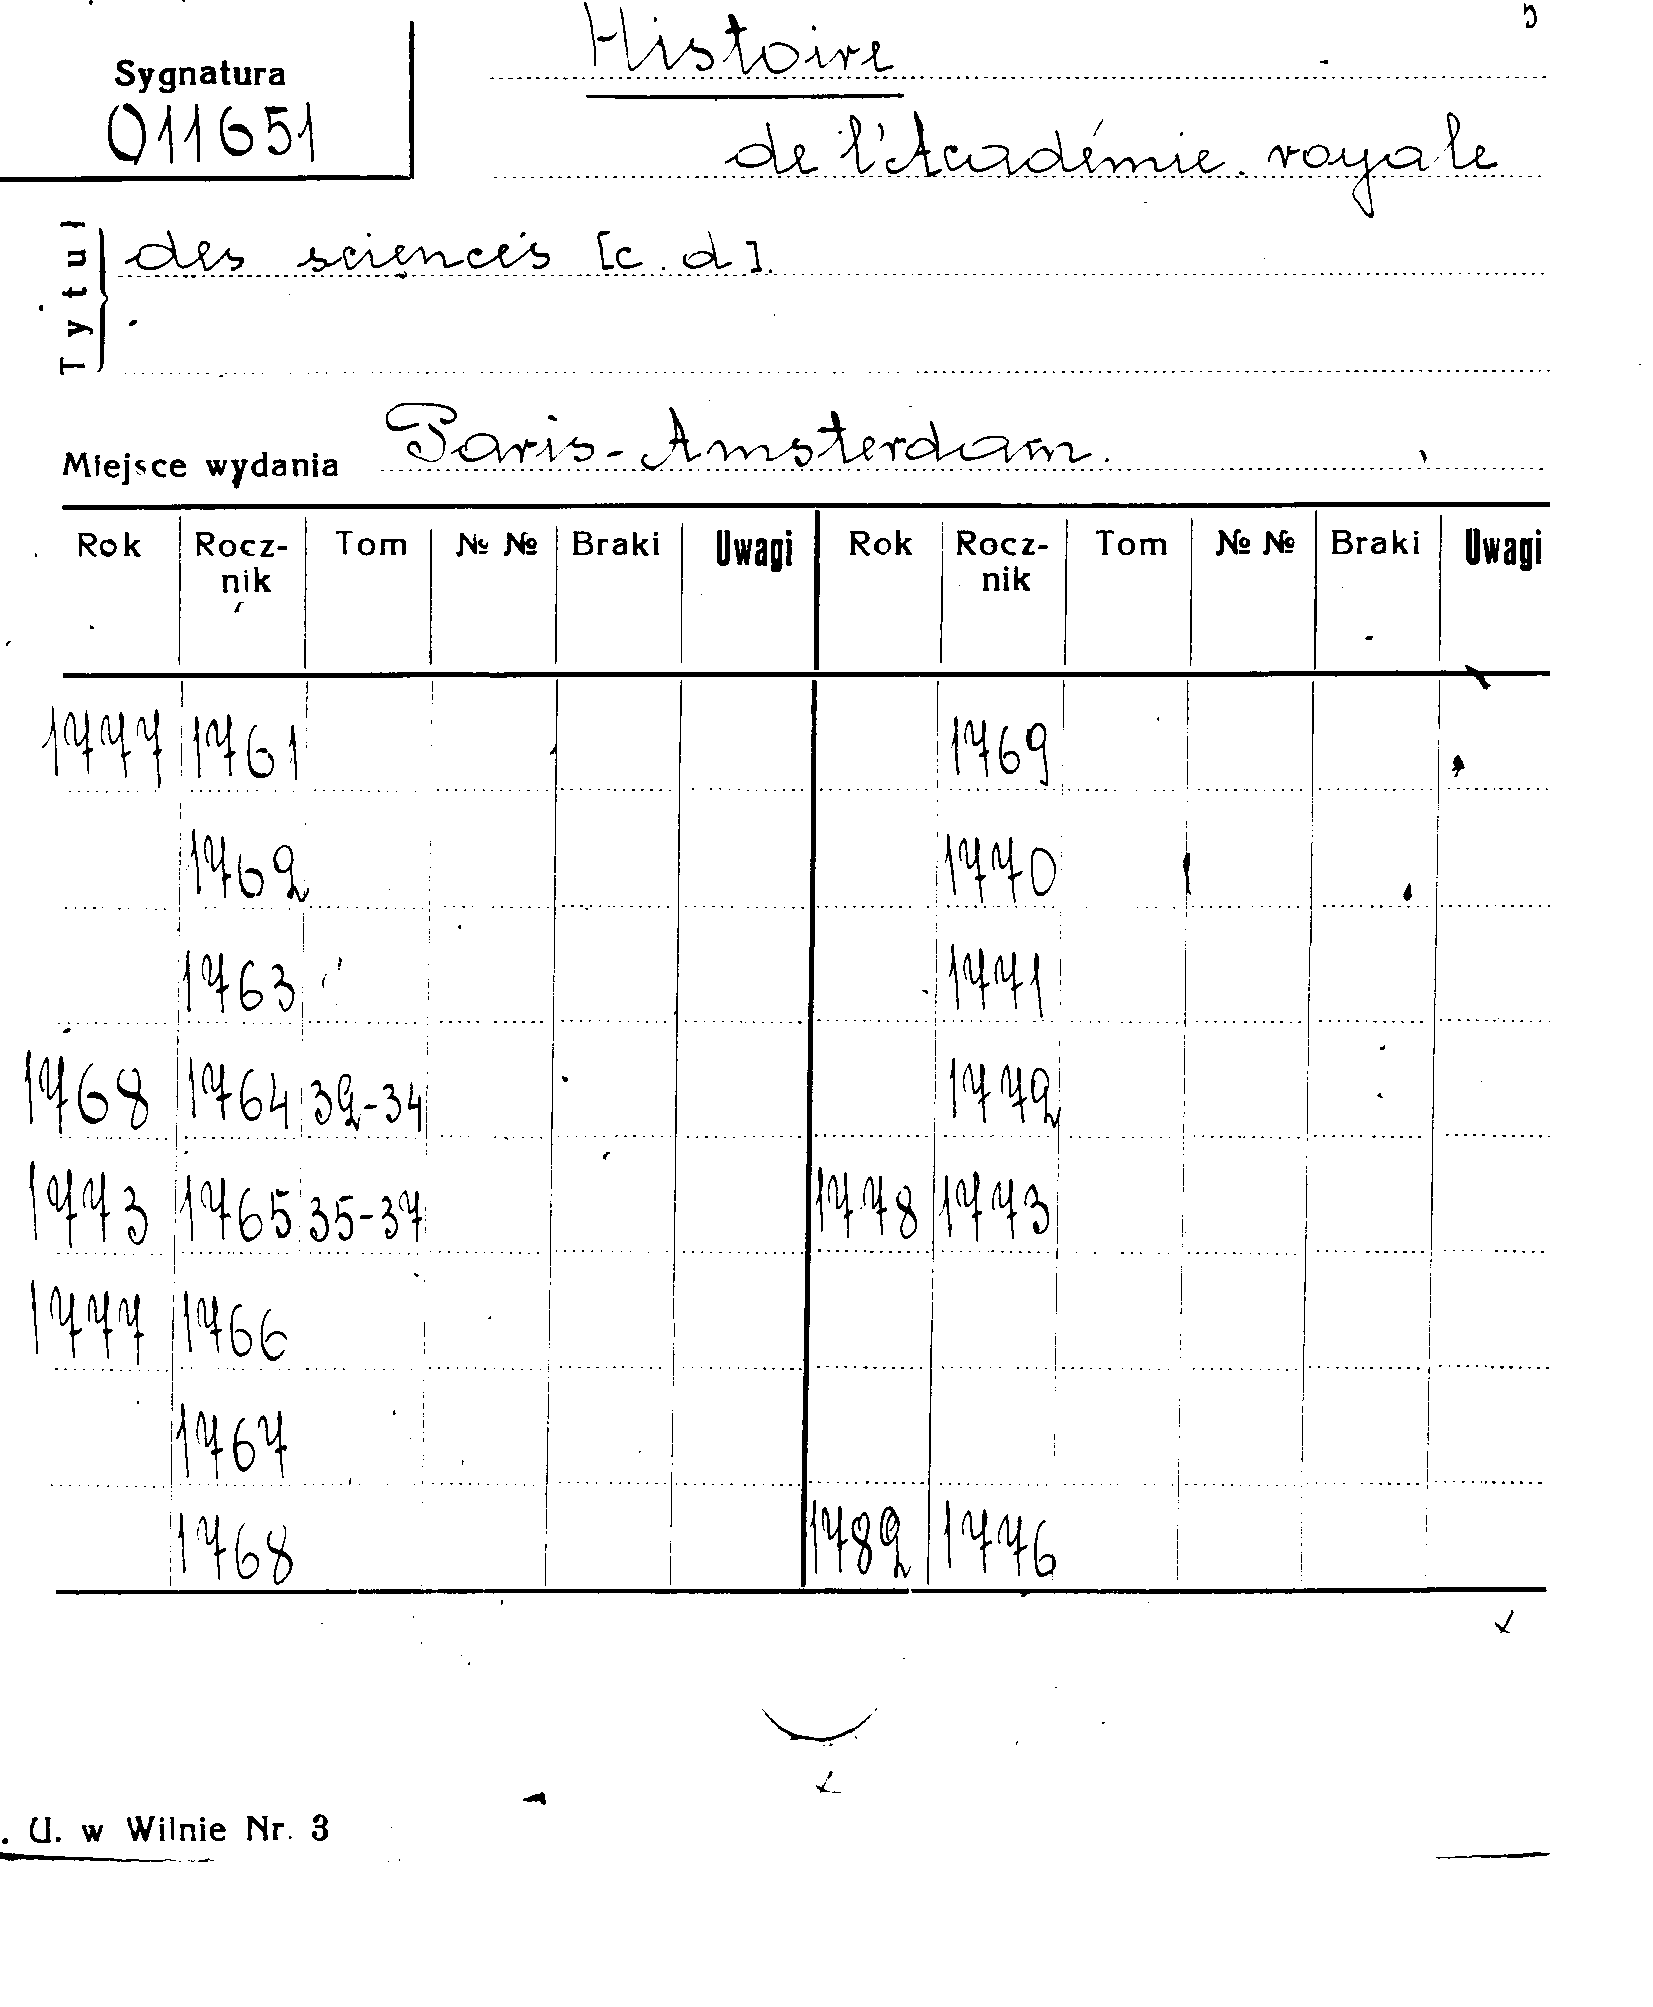 5
Histoire
Sygnatura
011651
de l'Académie royale
Tytuł
des sciences [c. d].
Miejsce wydania Paris-Amsterdam.
Rok Rocz-nik Tom № № Braki Uwagi Rok Rocz-nik Tom № № Braki Uwagi
1777 1761 1769
1762 1770
1763 1771
1768 1764 32-34 1772
1773 1765 35-37 1778 1773
1777 1766
1767
1768 1782 1776
. U. w Wilnie Nr. 3